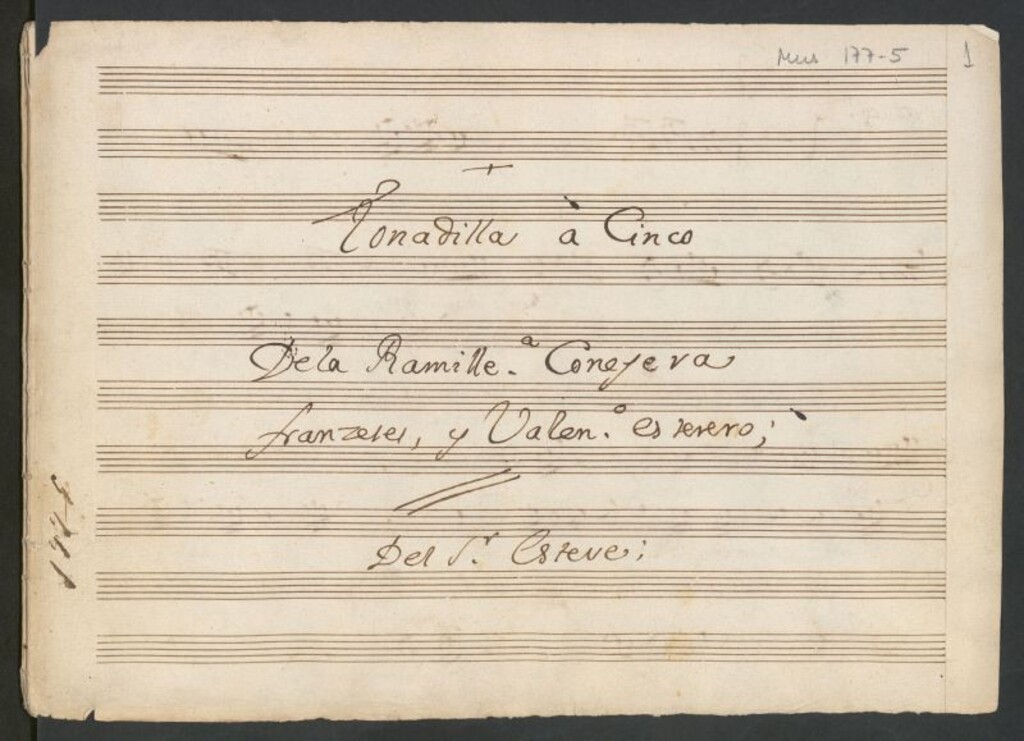 Mus 177-5
1
Tonadilla à Cinco
De la Ramille.ª Conejera
franzeses, y Valen.º esterero;
Del S.r Esteve;
177-5